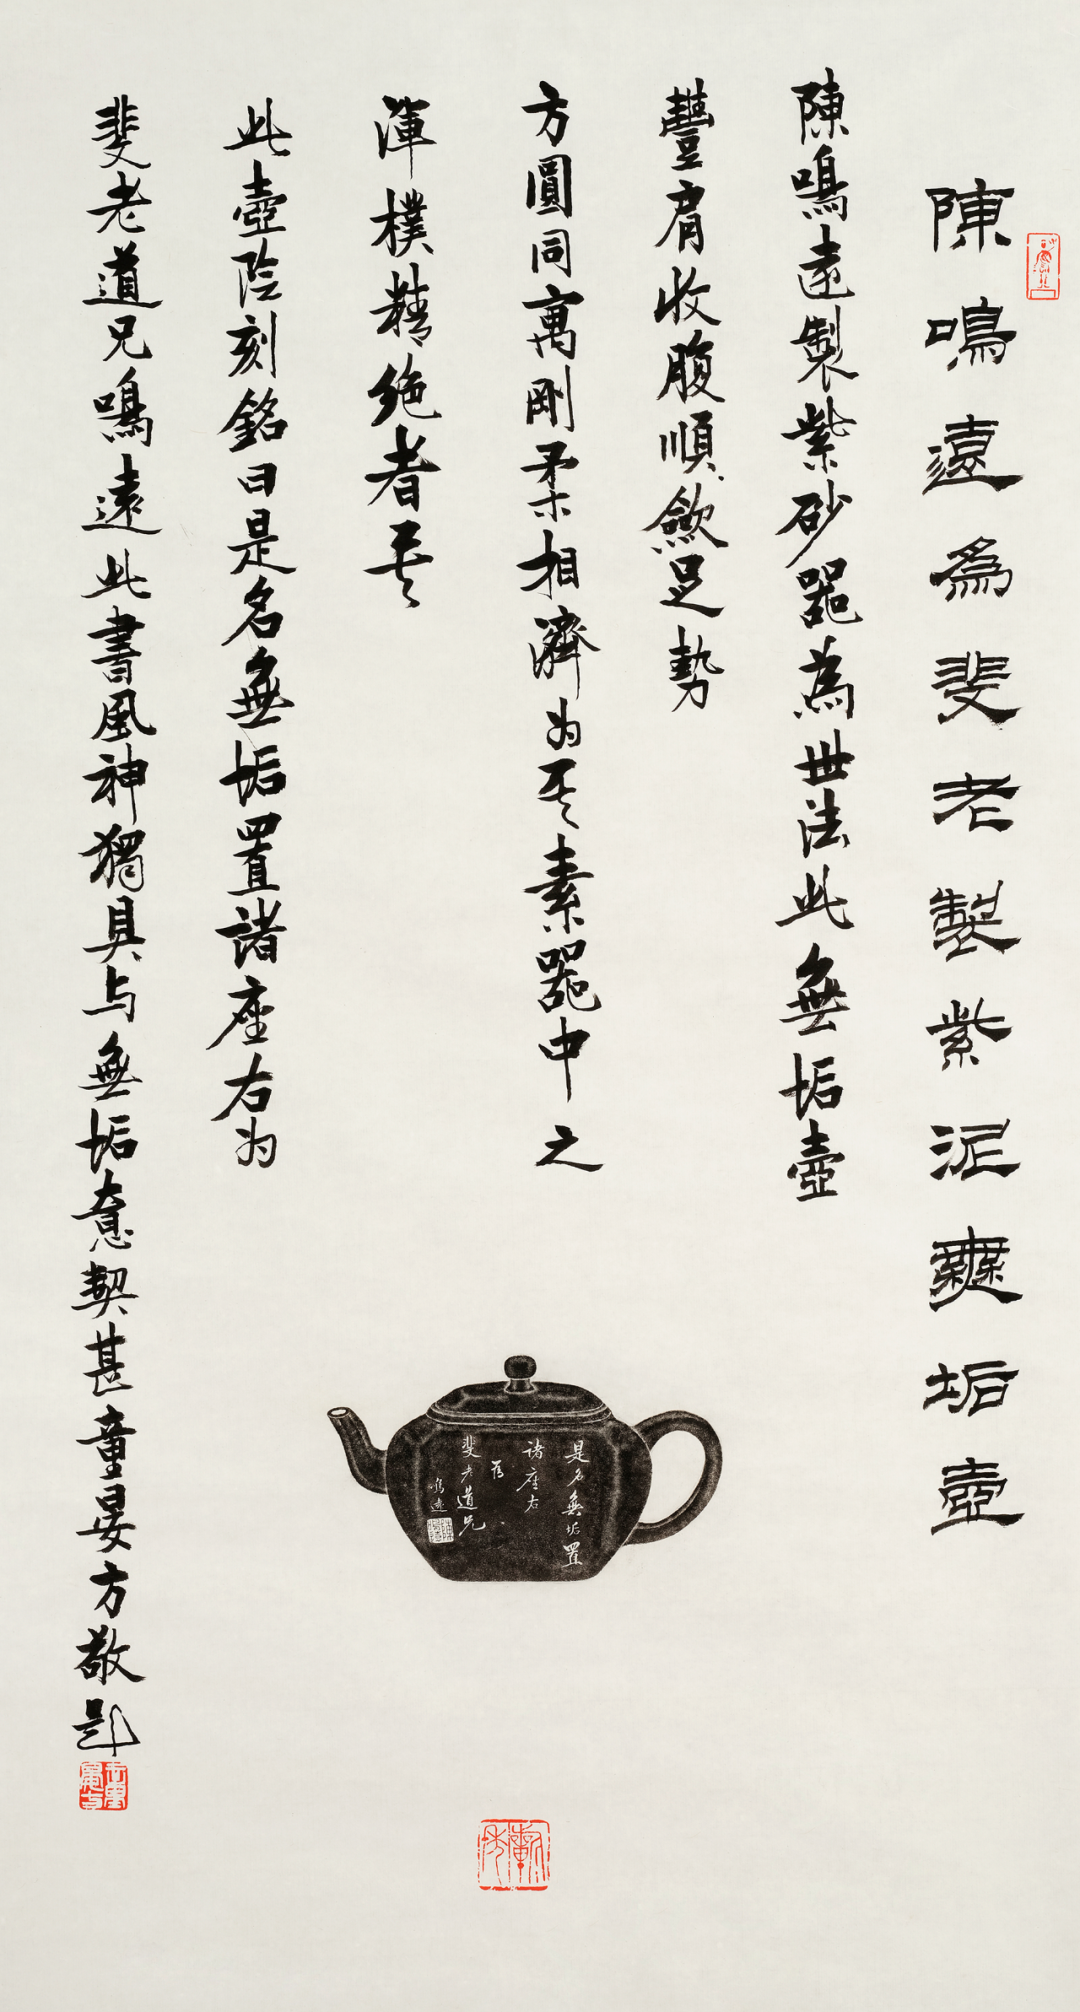 陳鳴遠為斐老製紫泥無垢壺
陳鳴遠製紫砂器為世法此無垢壺
豐肩收腹順歛足勢
方圓同寓剛柔相濟为至素器中之
渾樸精绝者至
此壺陰刻銘曰是名無垢置諸座右为
斐老道兄鳴遠此書風神獨具与無垢意契甚童晏方敬題
是名無垢置
諸座右
為
斐老道兄
鳴遠